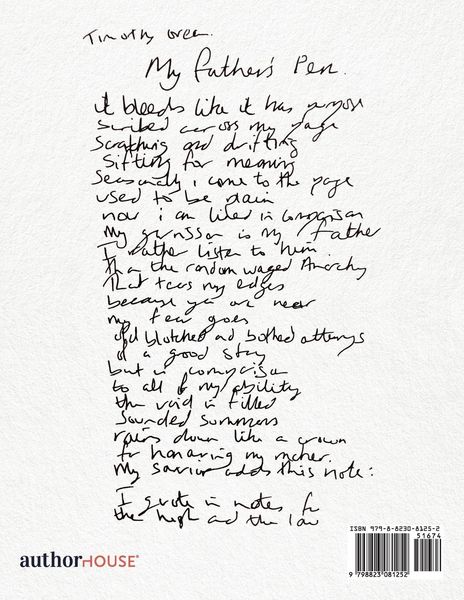 Timothy Green
My Father's Pen.
it bleeds like it has purpose
scribed across my page
Scratching and drifting
Sifting for meaning
Seasonally i come to the page
used to be plain
now i am lined in comparison
My is my father
I rather listen to him.
than the random waged Anarchy
That tears my edges
because you are near
my fear goes
old blotched and botched attempts
of a good story
but in comparison
to all of my ability
the void is filled
Sounded summers
rains down like a crown
for honoring my maker.
My savior adds this note:
I quote in notes for
the high and the low
authorHOUSE®
ISBN 979-8-8230-8125-2
51674
9 798823 081252